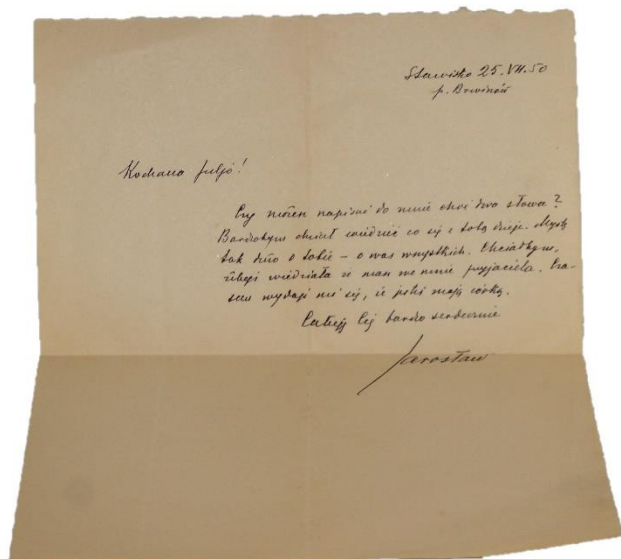 Stawisko 25.VII.50
p. Brwinów
Kochana Juljo!
Czy możesz napisać do mnie choć dwa słowa?
Bardzobym chciał wiedzieć co się z Tobą dzieje. Myślę
tak dużo o Tobie – o was wszystkich. Chciałbym,
żebyś wiedziała że masz we mnie przyjaciela. Cza-
sem wydaje mi się, że jesteś moją córką.
Całuję Cię bardzo serdecznie
Jarosław